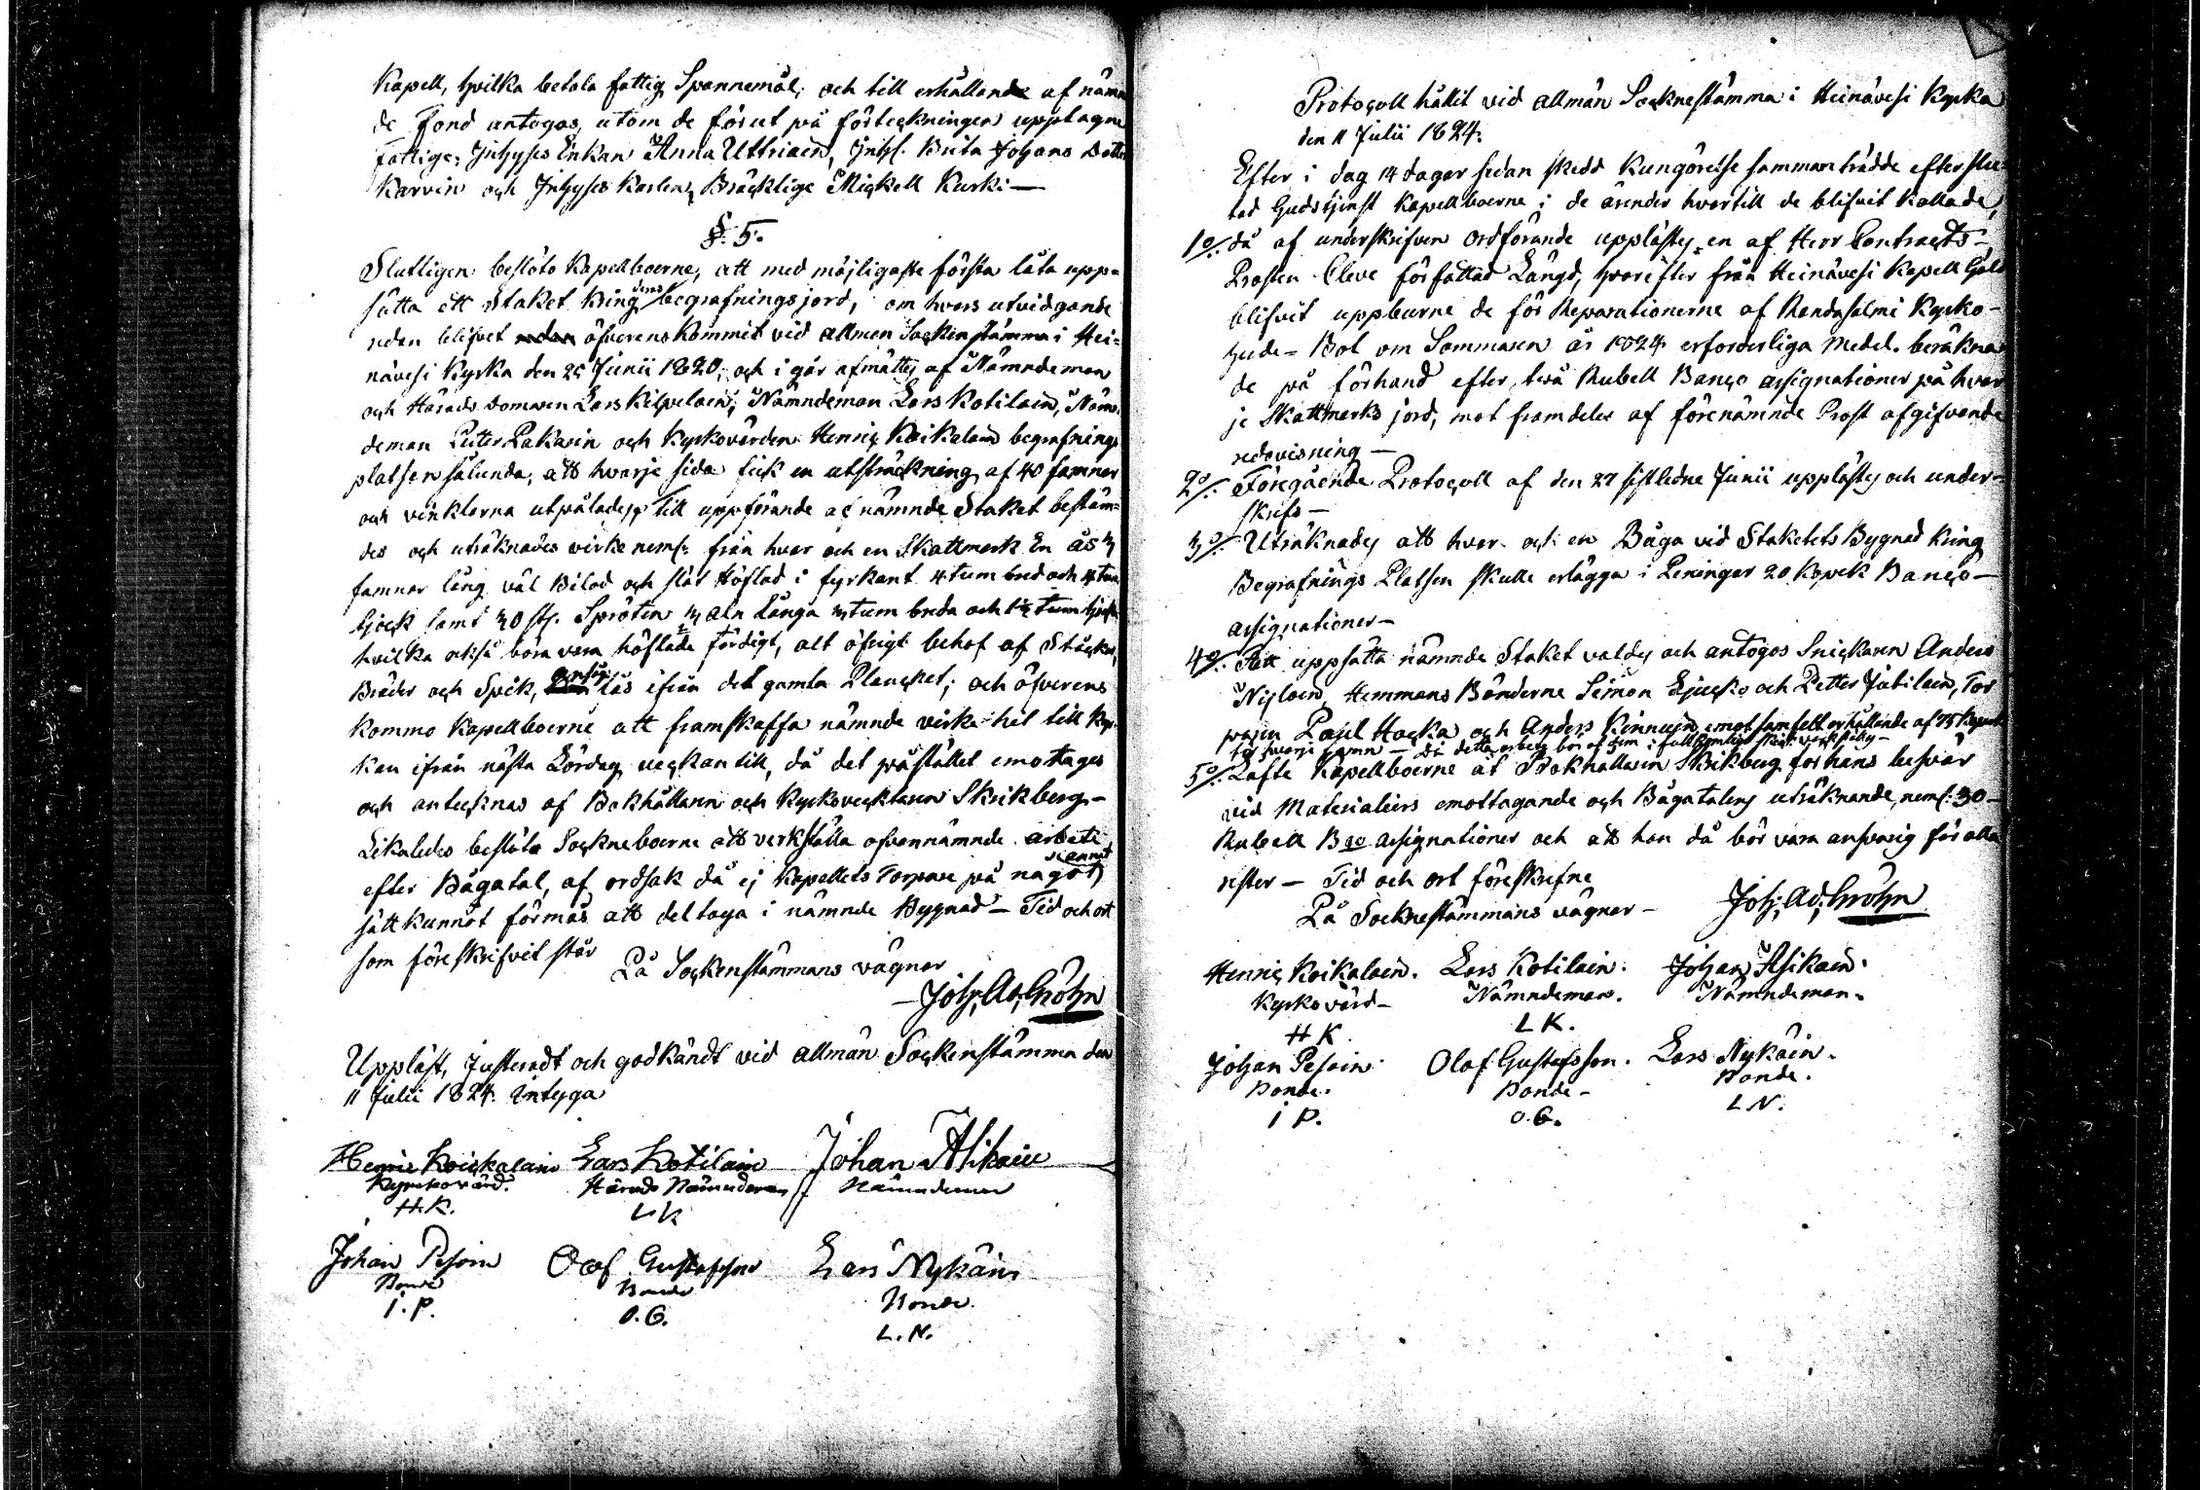 Kapell, hvilka betala fattig Spannemål; och till erhållande af nämn
de Fond antogos, utom de förut på förteckningen upptagne
Fattige; Inhyses Enkan Anna Uttriain, Inhs. Brita Johans Dotter
Karvin och Inhyses Karlen, Bräcklige Mickell Kurki —
§. 5.
Slutligen beslöto Kapellboerne, att med möjligaste första låta upp-
sätta ett Staket kring begrafningsjord, om hvars utvidgande
redan blifvet öfverenskommit vid allmen Sockenstämma i Hei-
nävesi Kyrka den 25 Junii 1820, och i går afmättes af Nämndeman
och Härads Domaren Lars Kilpelain, Nämndeman Lars Kotilain, Näm-
deman Petter Pakarin och Kyrkovärden Henric Koikalain begrafnings
platsen sålunda, att hvarje sida fick en utsträckning af 40 famnar
och vinklarna utpålades. Till uppförande af nämnde Staket bestäm-
des och uträknades virke neml. från hvar och en Skattmark En ås 3
famnar lång väl Bilad och slät Höflad i fyrkant 4 tum bred och 4 tum
tjock samt 30 st. Spröten 3 aln långa 3 tum breda och tum tjocka
hvilka också böra vara höflade färdigt, allt öfrigt behof af Stäckar,
Bräder och Spik, tås ifrån det gamla Plancket; och öfverens
kommo Kapellboerne att framskaffa nämnde virke hit till Kyr-
kan ifrån nästa Lördag veckan till, då det på stället emottages
och antecknas af Bokhållaren och Kyrkoväcktaren Skrikberg —
Likaledes beslöto Sockneboerne att verkställa ofvannämnde arbete
efter Bågatal, af ordsak då ej Kapellets Torpare på något annat
sätt kunnat förmås att deltaga i nämnde Bygnad — Tid och ort
som föreskrifvit står
På Sockenstämmans vägnar
— Joh. Ad. Gröhn
Uppläst, Justeradt och godkändt vid allmän Sockenstämma den
11 Julii 1824. Intyga
Henric Koickalain Lars Kotilain Johan Asikain
Kyrkovärd. Härads Nämndeman Nämndeman
H.K. L.K
Johan Pesoin Olof Gustafsson Lars Nykäin
Bonde Bonde Bonde
I.P. O.G. L.N.
Protocoll hållit vid allmän Socknestämma i Heinävesi Kyrka
den 11 Julii 1824.
Efter i dag 14 dagar sedan skedd Kungörelse sammanträdde efter slu-
tad Gudstjenst Kapellboerne i de ärender hvartill de blifvit kallade,
1o/. då af underskrifven Ordförande upplästes en af Herr Contracts-
Prosten Cleve författad Längd, hvarefter från Heinävesi Kapell Gäld
blifvit uppburne de för Reparationerne af Randasalmi Kyrko-
herde-Bol om Sommaren år 1824 erforderliga Medel beräkna
de på förhand efter två Rubell Banco assignationer på hvar
je Skattmarks jord, mot framdeles af förenämnde Prost afgifvande
redovisning —
2o/. Föregående Protocoll af den 27 sistledne Junii upplästes och under-
skrefs —
3o/. Uträknades att hvar och en Båga vid Staketets Bygnad kring
Begrafnings Platsen skulle erlägga i Peningar 20 Kopek Banco —
assignationer —
4o/. Att uppsätta nämnde Staket valdes och antogos Snickaren Anders
Nislain, Hemmans Bönderne Simon och Petter Jäbilain, Tor
paren Paul Hacka och Anders Kinnuin emot samfelt erhållande af 75 Kopek
för hvarje famn — då detta arbete bör af dem i fullkomligt skick verkställas —
5o/. Läfte Kapellboerne åt Bokhållaren Skrikberg för hans besvär
vid Materialiers emottagande och Bågatalens uträknande, neml. 30 —
Rubell Bco assignationer och att han då bör vara ansvarig för alla
rester — Tid och ort föreskrefne
På Socknestämmans vägnar — Joh. Ad. Gröhn
Henric Koikalain. Lars Kotilain. Johan Asikain.
Kyrkovärd — Nämndeman. Nämndeman.
H K. L K.
Johan Pesoin Olof Gustafsson. Lars Nykäin.
Bonde. Bonde — Bonde.
I P. O.G. L.N.